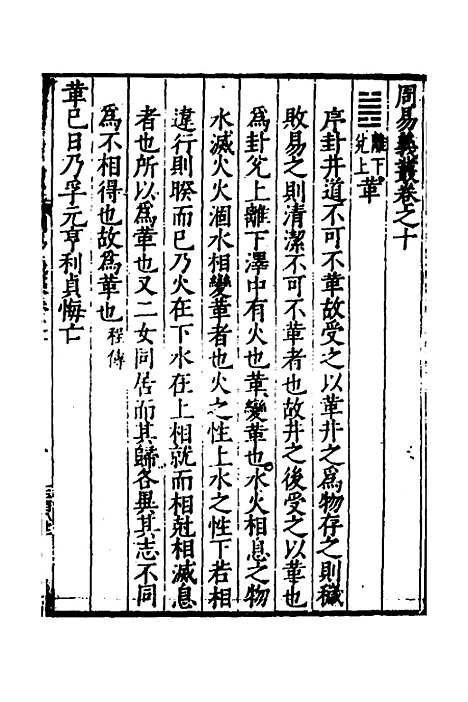 周易義叢卷之十
離下兌上 革
序卦井道不可不革故受之以革井之為物存之則穢
敗易之則清潔不可不革者也故井之後受之以革也
為卦兌上離下澤中有火也革變革也水火相息之物
水滅火火涸水相變革者也火之性上水之性下若相
違行則睽而已乃火在下水在上相就而相尅相滅息
者也所以為革也又二女同居而其歸各異其志不同
為不相得也故為革也 程傳
革已日乃孚元亨利貞悔亡